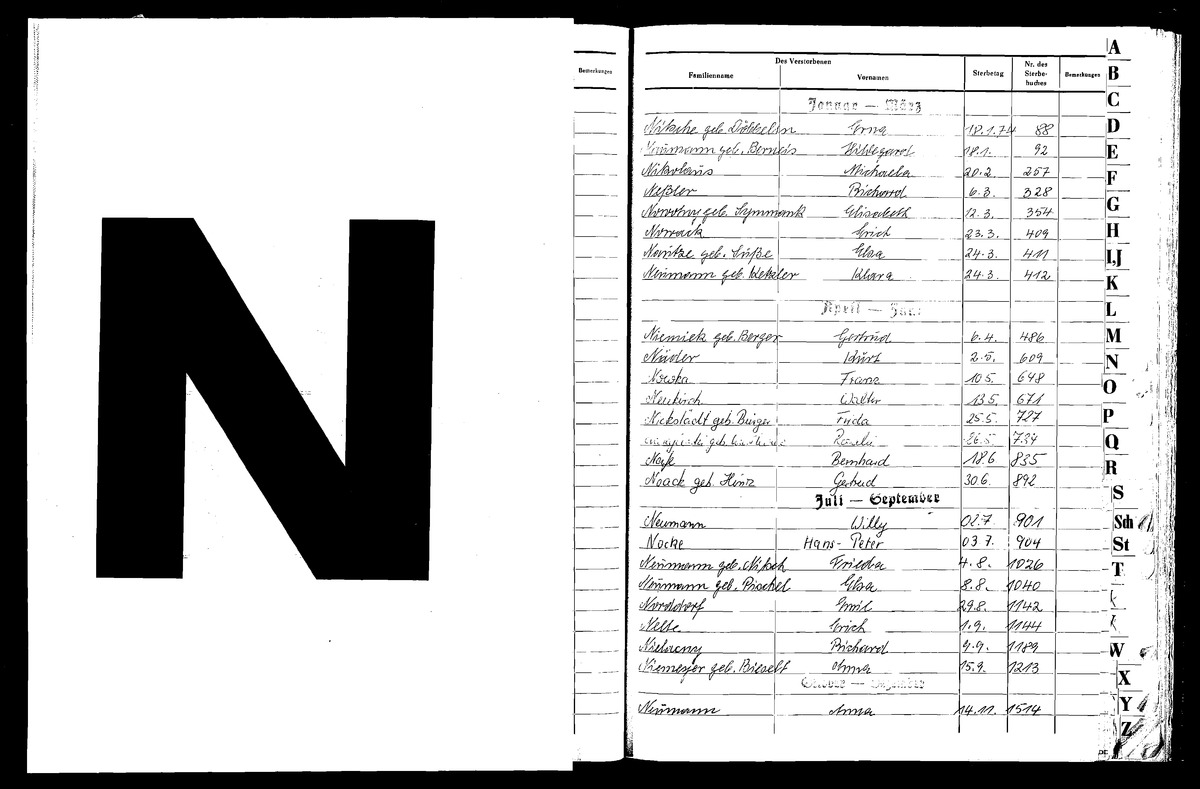 N
Bemerkungen
Des Verstorbenen
Familienname Vornamen Sterbetag Nr. des Sterbe-buches Bemerkungen
Januar — März
Nitsche geb. Döbbelin Erna 18.1.74 88
Naumann geb. Berneis Hildegard 18.1. 92
Nikolaus Michaela 20.2. 257
Neßler Richard 6.3. 328
Nowotny geb. Symmank Elisabeth 12.3. 354
Nowack Erich 23.3. 409
Noritze geb. Süße Elsa 24.3. 411
Neumann geb. Ketzler Klara 24.3. 412
April — Juni
Niemiek geb. Berger Gertrud 6.4. 486
Näder Kurt 2.5. 609
Nowka Franz 10.5. 648
Neukirch Walter 13.5. 671
Nickstädt geb. Bürger Frida 25.5. 727
geb. 26.5. 734
Bernhard 18.6 835
Noack geb. Hinz Gertrud 30.6. 892
Juli — September
Neumann Willy 02.7. 901
Nocke Hans-Peter 03.7. 904
Neumann geb. Nitsch Frieda 4.8. 1026
Neumann geb. Pischel Elsa 8.8. 1040
Norddorf Emil 29.8. 1142
Nelte Erich 1.9. 1144
Richard 9.9. 1189
Niemeyer geb. Bieselt Anna 15.9. 1213
Oktober — Dezember
Neumann Anna 14.11. 1514
A
B
C
D
E
F
G
H
I,J
K
L
M
N
O
P
Q
R
S
Sch
St
T
W
X
Y
Z